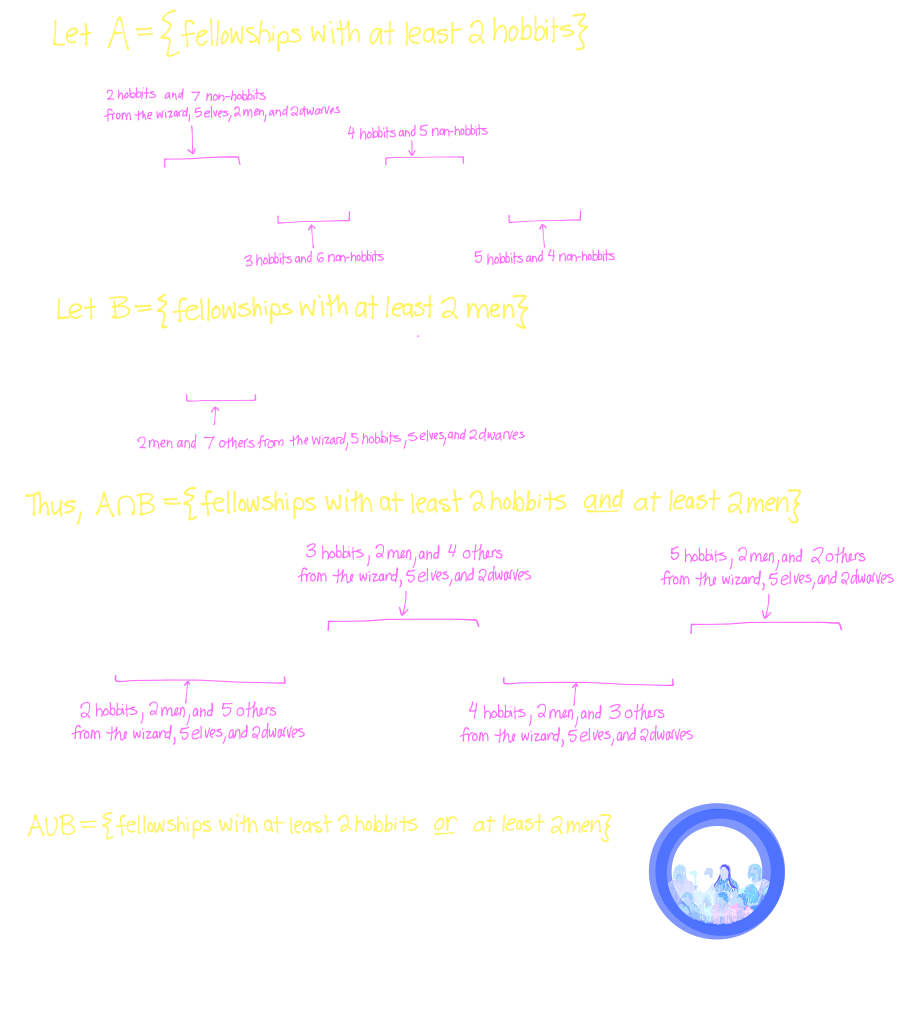 Let A = {fellowships with at least 2 hobbits}
2 hobbits and 7 non-hobbits
from the wizard, 5 elves, 2 men, and 2 dwarves
4 hobbits and 5 non-hobbits
3 hobbits and 6 non-hobbits
5 hobbits and 4 non-hobbits
Let B = {fellowships with at least 2 men}
2 men and 7 others from the wizard, 5 hobbits, 5 elves, and 2 dwarves
Thus, A∩B = {fellowships with at least 2 hobbits and at least 2 men}
3 hobbits, 2 men, and 4 others
from the wizard, 5 elves, and 2 dwarves
5 hobbits, 2 men, and 2 others
from the wizard, 5 elves, and 2 dwarves
2 hobbits, 2 men, and 5 others
from the wizard, 5 elves, and 2 dwarves
4 hobbits, 2 men, and 3 others
from the wizard, 5 elves, and 2 dwarves
A∪B = {fellowships with at least 2 hobbits or at least 2 men}